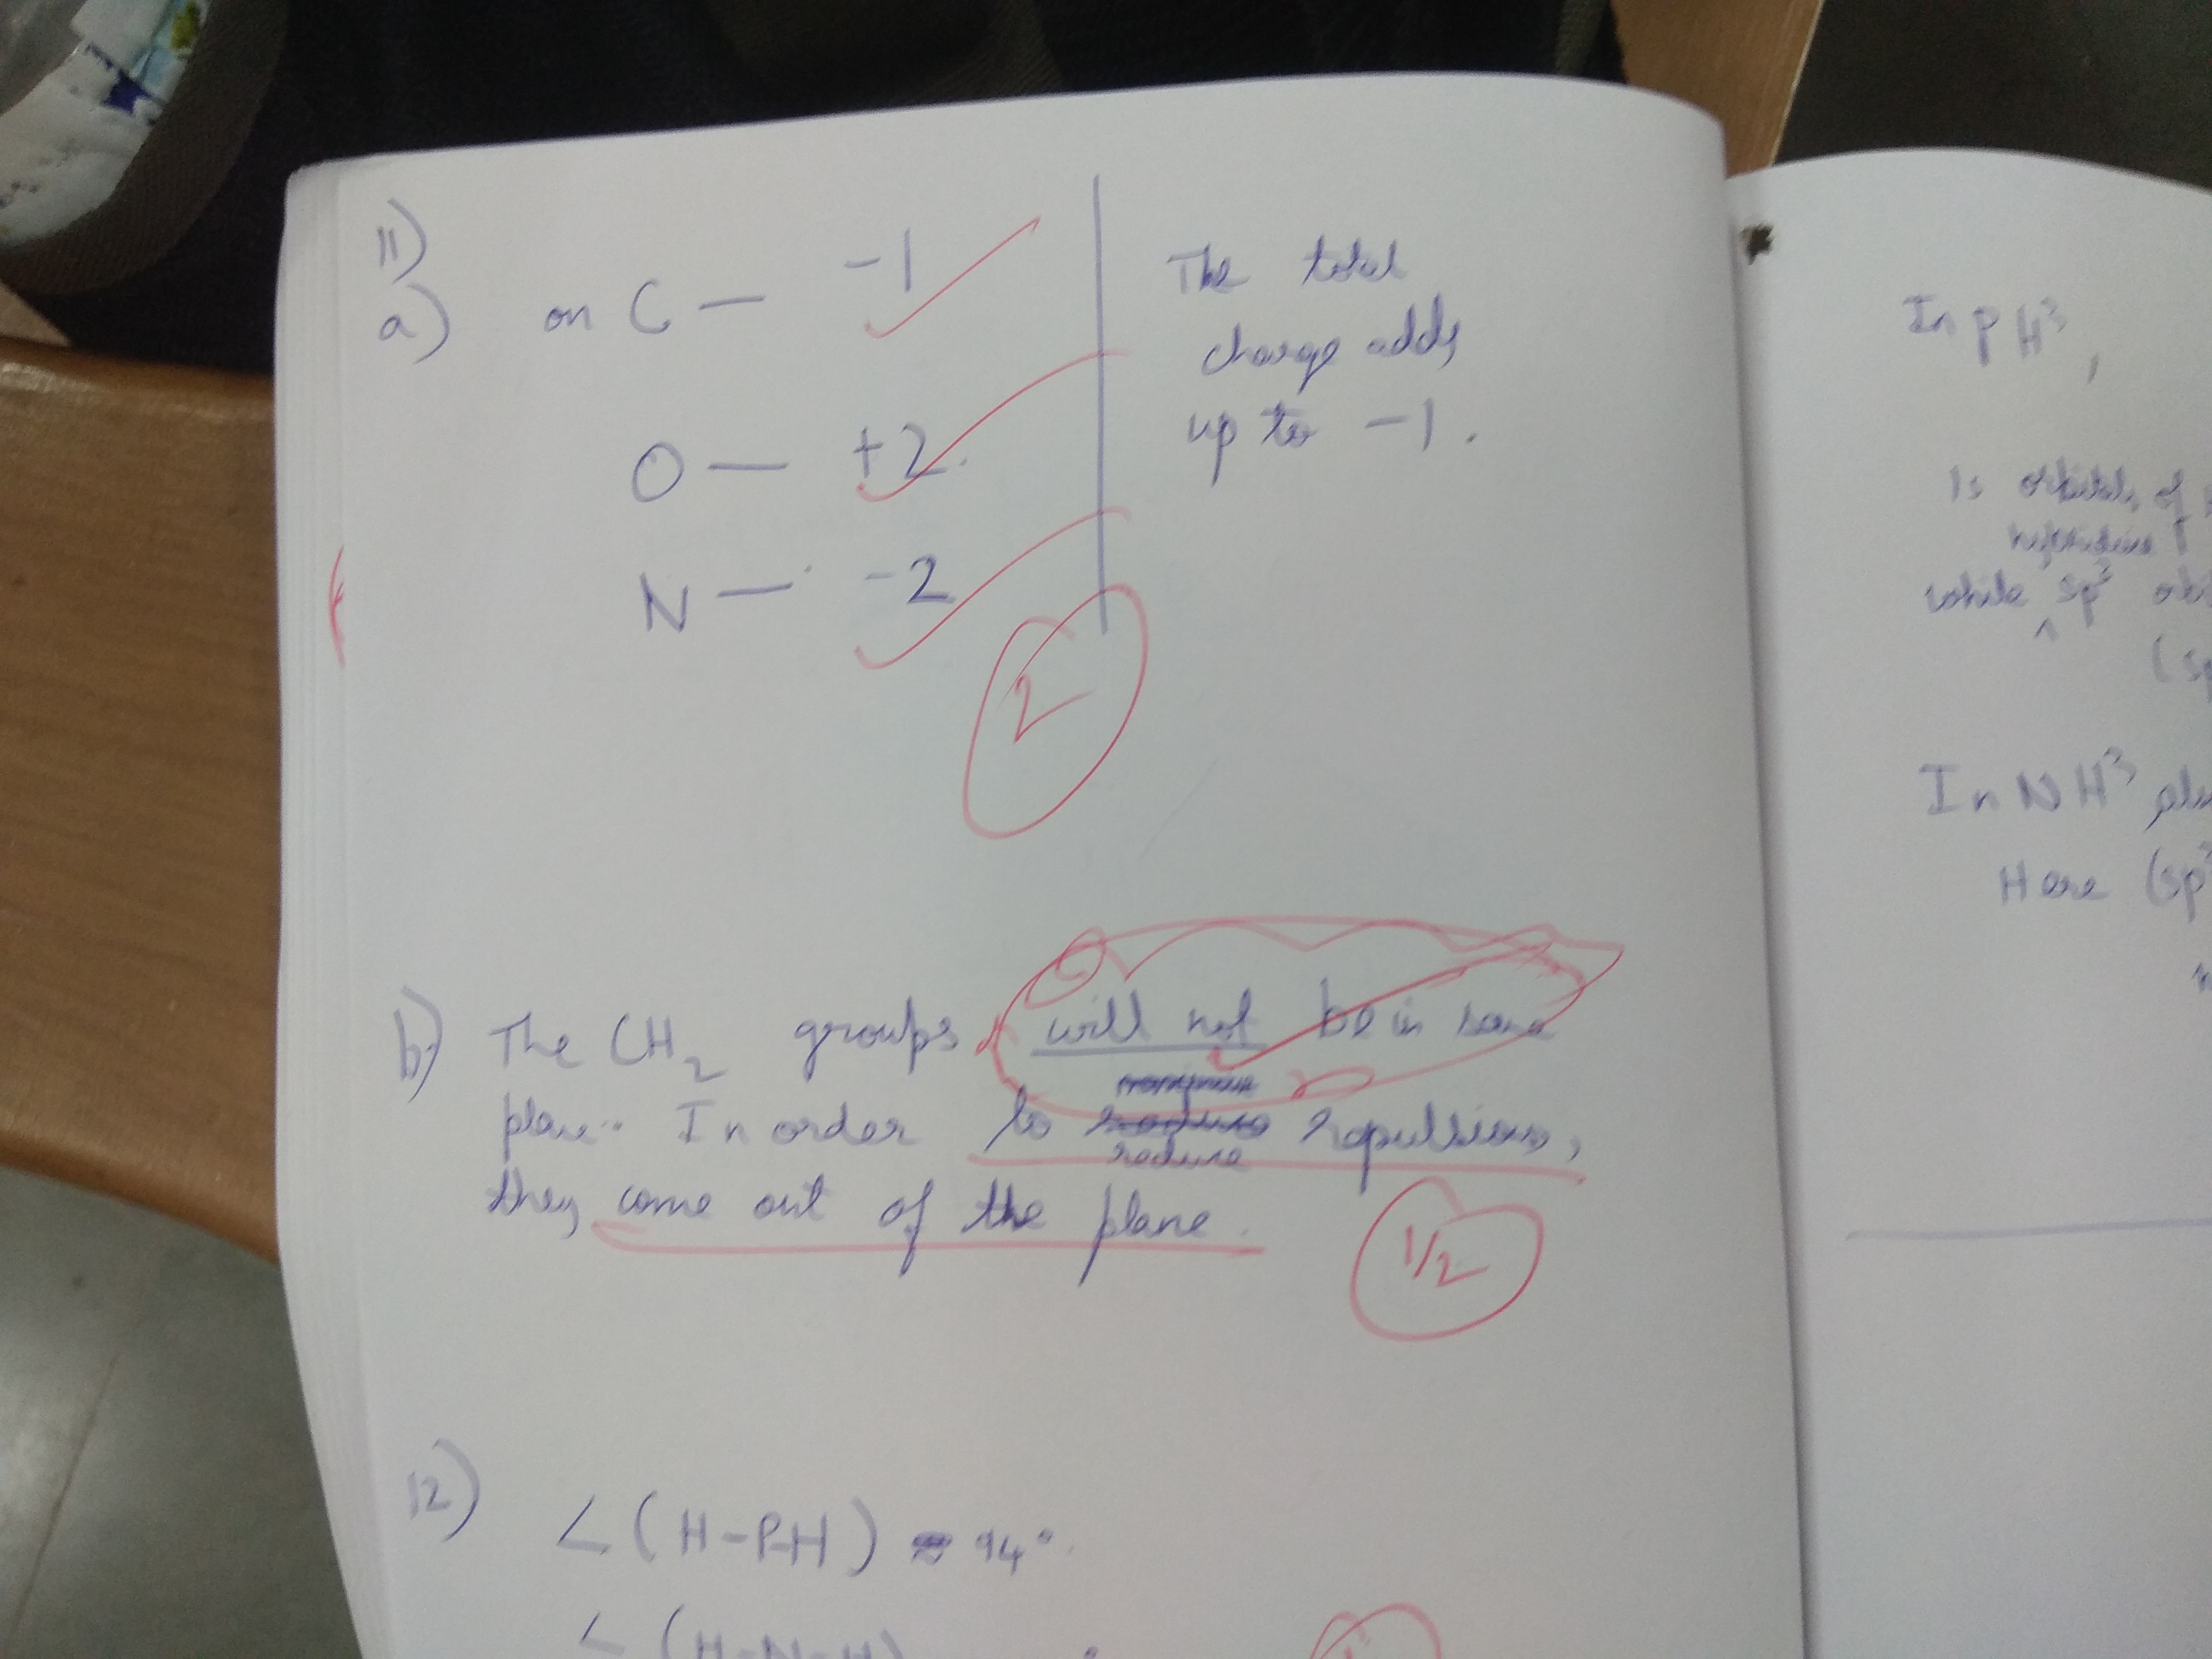 11)
a) on C — -1
O — +2.
N — -2
The total
charge adds
up to -1.
2
b) The CH2 groups will not be in same
plane. In order to reduce repulsions,
they come out of the plane.
1/2
12) <(H-P-H) 94°.
<(H-N-H)
In PH3,
1s orbitals of
while sp3
(sp
In NH3
Here (sp3